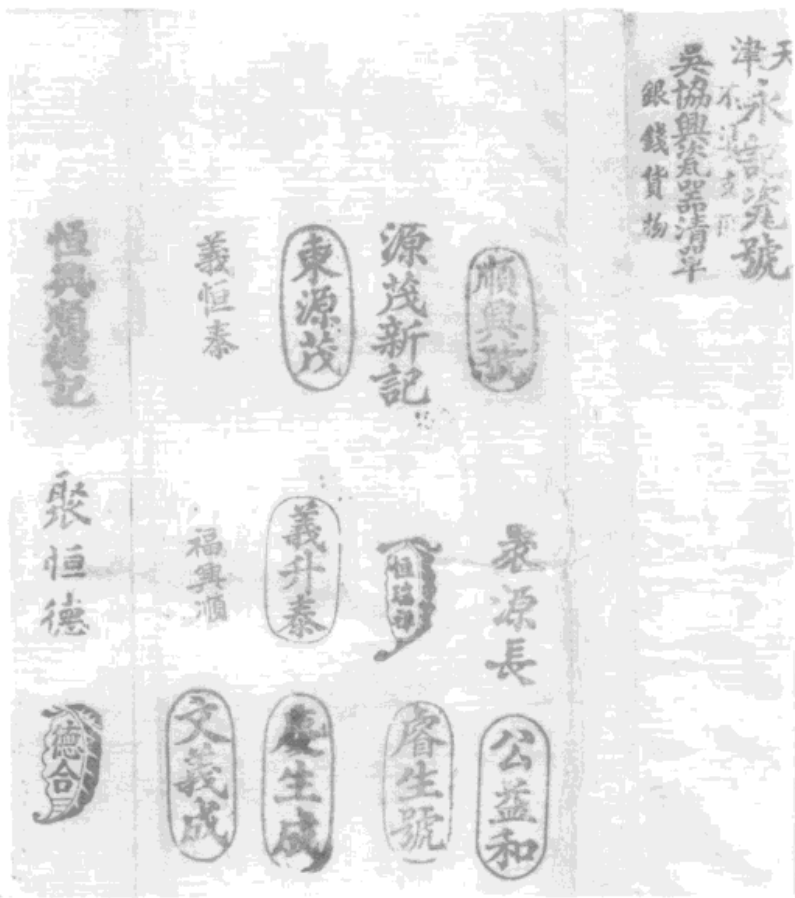 天津
永記瓷號
吳協興瓷器清單
銀錢貨物
順興號
源茂新記
東源茂
義恒泰
源長
義升泰
福興順
聚恒德
公益和
睿生號
慶生成
文義成
德合